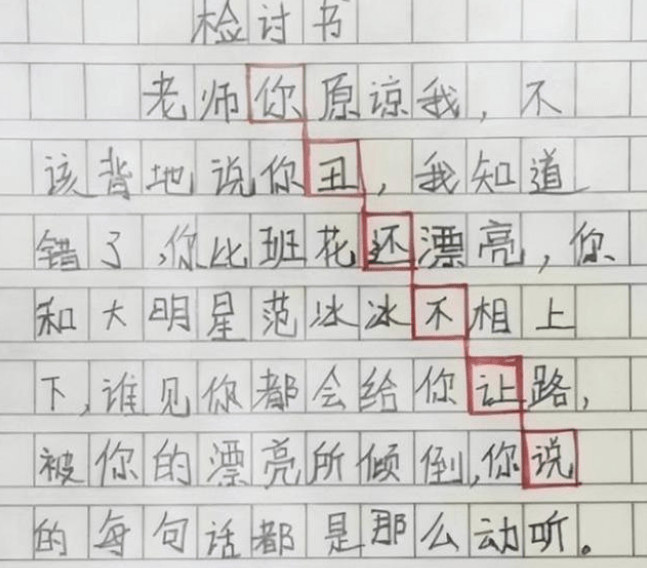 检讨书
老师你原谅我，不
该背地说你丑，我知道
错了，你比班花还漂亮，你
和大明星范冰冰不相上
下，谁见你都会给你让路，
被你的漂亮所倾倒，你说
的每句话都是那么动听。